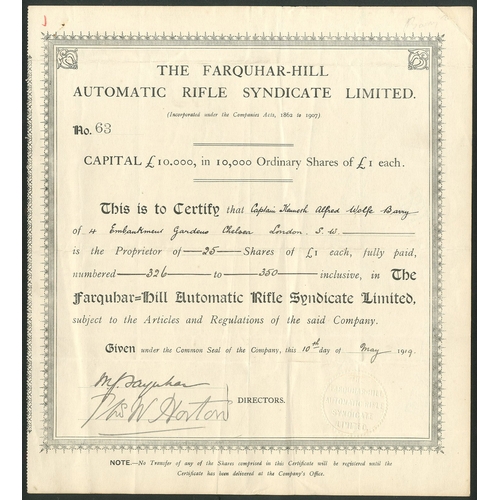 THE FARQUHAR-HILL
AUTOMATIC RIFLE SYNDICATE LIMITED.
(Incorporated under the Companies Acts, 1862 to 1907)
No. 63
CAPITAL £10,000, in 10,000 Ordinary Shares of £1 each.
This is to Certify that Captain Kenneth Alfred Wolfe Barry
of 4 Embankment Gardens Chelsea London. S.W.
is the Proprietor of 25 Shares of £1 each, fully paid,
numbered 326 to 350 inclusive, in The
Farquhar=Hill Automatic Rifle Syndicate Limited,
subject to the Articles and Regulations of the said Company.
Given under the Common Seal of the Company, this 10th day of May 1919.
M. G. Farquhar
Horton
DIRECTORS.
NOTE.—No Transfer of any of the Shares comprised in this Certificate will be registered until the
Certificate has been delivered at the Company's Office.